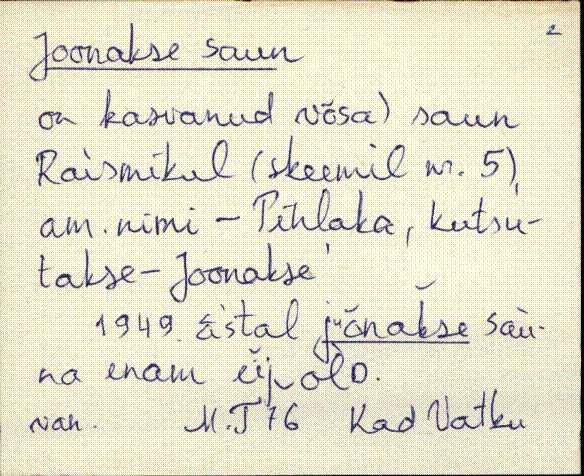 2
Joonakse saun
on kasvanud võsa) saun
Raismikul (skeemil nr. 5),
am. nimi – Pihlaka, kutsu-
takse – Joonakse
1949. a̋stal juo̬nakse sàu-
na enam ei̬ olo.
van. M.T 76 Kad Vatku